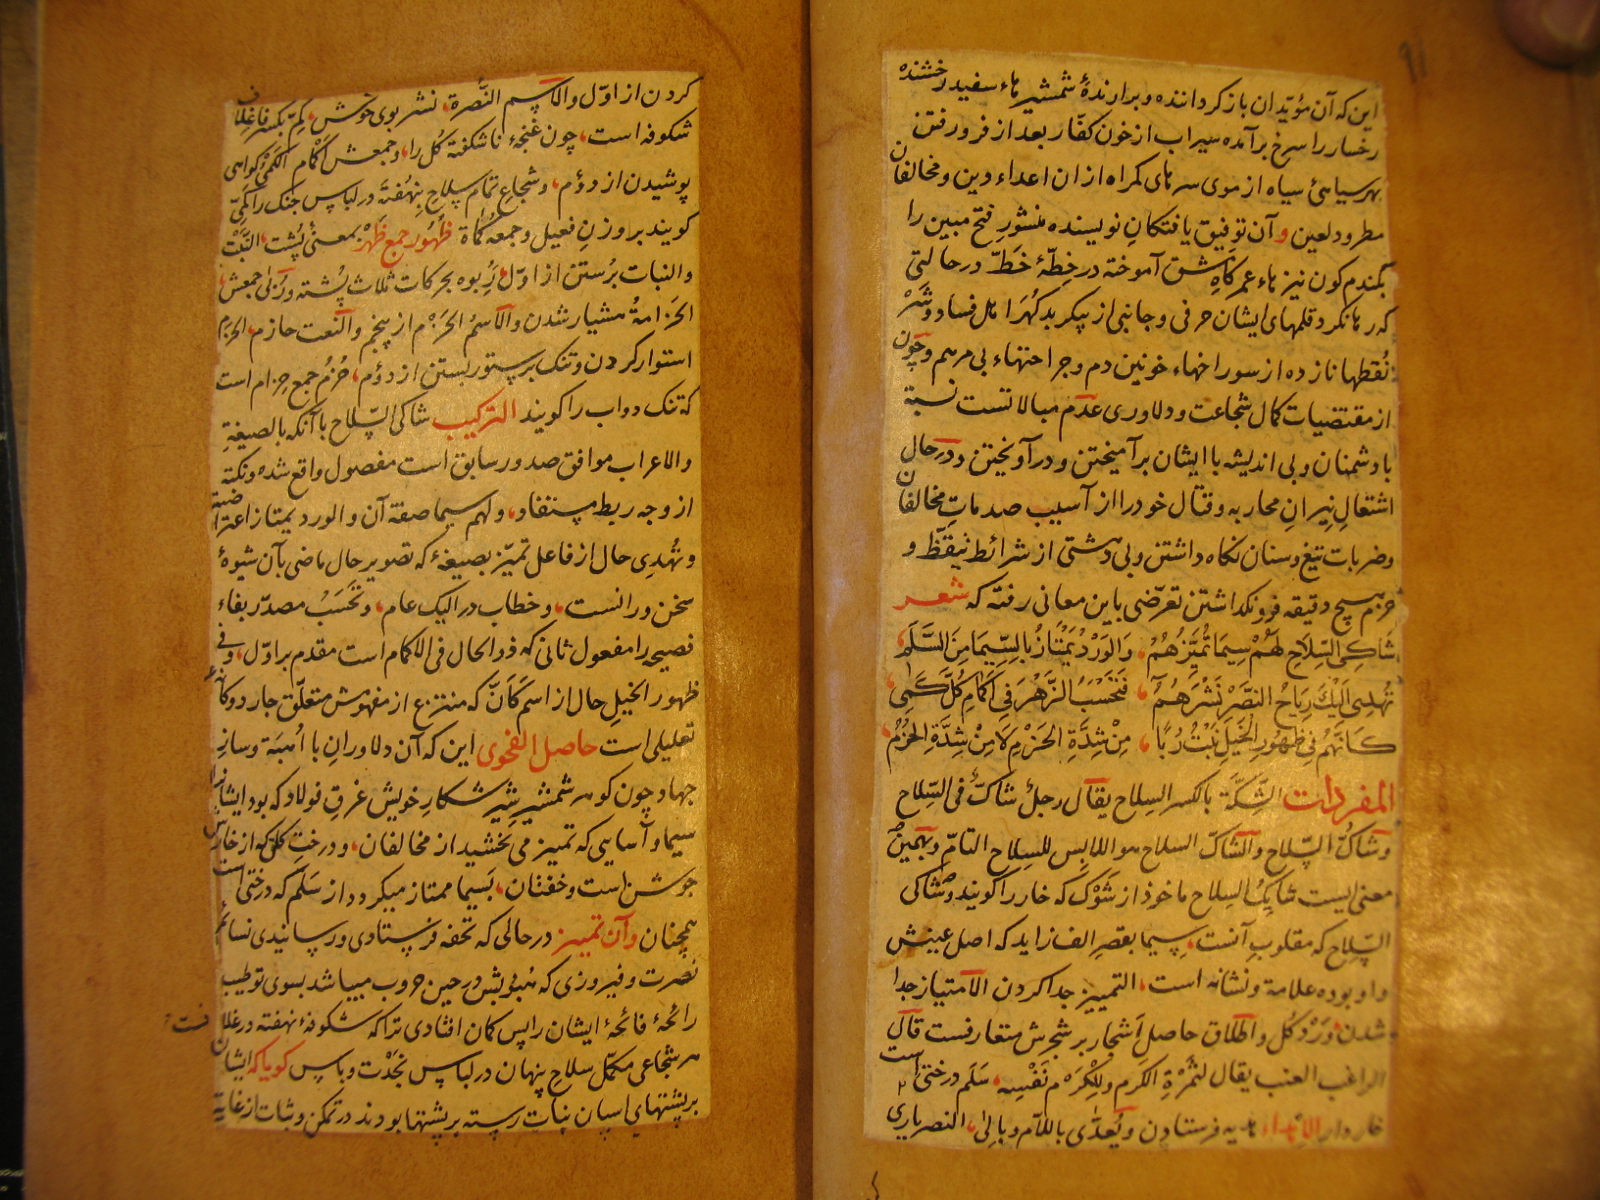 ۹۱
این که آن مؤیدان بازگرداننده و برارندهٔ شمشیرهاء سفید رخشنده
رخسار را سرخ برآمده سیراب از خون کفّار بعد از فرو رفتن
بهر سیاهئ سیاه از موی سرهای گمراه از ان اعداء دین و مخالفان
مطرود لعین و آن توفیق یافتکان نویسنده منشور فتح مبین را
بگندم کون نیزهاء عمر کاهِ مشق آموخته در خِطّهٔ خَطّ در حالتی
که رها نکرد قلمهای ایشان حرفی و جانبی از پیکر بدکهرا اهل فساد و شر
نُقطها نازده از سوراخهاء خونین دم و جراحتهاء بی مرهم و چون
از مقتضیات کمال شجاعت و دلاوری عدم مبالاتست نسبة
با دشمنان و بی اندیشه با ایشان برآمیختن و درآویختن و در حال
اشتعال نیرانِ محاربه و قتال خود را از آسیب صدماتِ مخالفان
و ضربات تیغ و سنان نکاه داشتن و بی دهشتی از شرائط تیقّظ و
حزم هیچ دقیقه فرو نکداشتن تعرّضی باین معانی رفته که شعر
شَاكِي السِّلَاحِ لَهُمْ سِيمَا تُمَيِّزُهُمْ وَالوَرْدُ يَمْتَازُ بِالسِّيمَا مِنَ السَّلَمِ
تُهْدِي إِلَيْكَ رِيَاحُ النَّصْرِ نَشْرَهُمُ فَتَحْسَبُ الزَّهْرَ فِي الأَكْمَامِ كُلَّ كَمِي
كَأَنَّهُمْ فِي ظُهُورِ الْخَيْلِ نَبْتُ رُبًا مِنْ شِدَّةِ الْحَزْمِ لَا مِنْ شِدَّةِ الْحُزُمِ
المفردات الشِّكَّة بالکسر السلاح یقال رجل شاكّ فی السّلاح
و شاكّ السّلاح و الشاكّ السلاح هو اللابس للسلاح التام و بهمین
معنی ایست شایك السلاح ماخوذ از شَوْك که خار را کویند و شاکی
السّلاح که مقلوب آنست، سیما بقصر الف زاید که اصل عینش
واو بوده علامة و نشانه است، التمییز جدا کردن الامتیاز جدا
شدن وَرْد کُل و اطلاق حاصل اشجار بر شجرش متعارفست قال
الراغب العنب یقال لثمرة الکرم و للکرم نفسه، سَلَم درختی است
خاردار الاهداء هدیه فرستادن و یُعدّی باللام و بالی، النصر یاری
کردن از اوّل و الاسم النُّصرة، نشر بوی خوش، کِمّ بکسر فا غلاف
شکوفه است، چون غنجهٔ ناشکفتهٔ کُل را، و جمعش اکمام الکَمْی کواهی
پوشیدن از دؤم، و شجاع تمام سلاحِ نهفته در لباس جنک را کَمِیّ
کویند بر وزن فعیل و جمعه کُماة ظهور جمع ظَهْر بمعنئ پُشت، النَّبْت
و النبات برُستن از اوّل، رُبوه بحرکات ثلاث پُشته و رُبی جمعش،
الحَزامةُ هشیار شدن و الاسمُ الحَزْم از پنجم و النعت حازم، الحزم
استوار کردن و تنک بر ستور بستن از دؤم، حُزُم جمع حِزام است
که تنک دواب را کویند الترکیب شاکی السّلاح با آنکه بالصیغة
والاعراب موافق صدور سابق است مفصول واقع شده و نکتة
از وجه ربط مستفاد، و لهم سیما صفة آن و الورد یمتاز اعتراضیة
و تُهدِی حال از فاعل تمیّز بصیغهٔ که تصویر حال ماضی بآن شیوهٔ
سخن ورانست، و خطاب در الیك عام، و تَحْسَبُ مصدّر بفاء
فصیحه را مفعول ثانی که ذو الحال فی الاکمام است مقدم بر اوّل، و فی
ظهور الخیل حال از اسم کَاَنَّ که منتزع از مفهومش متعلّق جار دوکانهٔ
تعلیلی است حاصل الفحوی این که آن دلاورانِ با اُهبَة و سازِ
جهاد چون کوهر شمشیر شیر شکارِ خویش غرقِ فولاد که بود ایشانرا
سیما و آسایی که تمییز می بخشید از مخالفان، و درختِ کل که از خارش
جوشن است و خفتان، بسیما ممتاز میکردد از سَلَم که درختی است
همچنان و آن تمییز در حالی که تحفه فرستادی و رسانیدی نسائم
نصرت و فیروزی که مهبوبش در حین حروب میباشد بسوی تو طیب
رائحهٔ فائحهٔ ایشان را پس کمان افتادی ترا که شکوفهٔ نهفته در غلافست
هر شجاعی مکمّل سلاح پنهان در لباس نَجْدْت و باس کویا که ایشان
بر پشتهای اسپان نبات رسته بر پشتها بودند در تمکن و ثبات از غایة